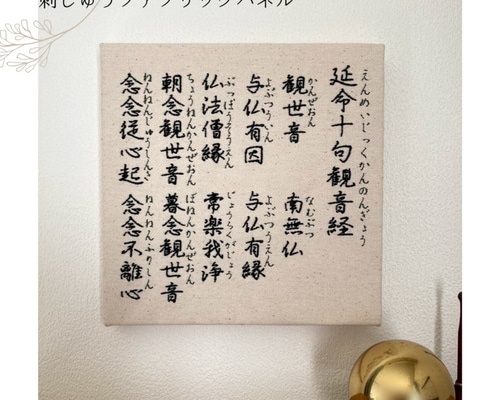 刺しゅうファブリックパネル
えんめいじっくかんのんぎょう
延命十句観音経
かんぜおん なむぶつ
観世音 南無仏
よぶつういん よぶつうえん
与仏有因 与仏有縁
ぶっぽうそうえん じょうらくがじょう
仏法僧縁 常楽我浄
ちょうねんかんぜおん ぼねんかんぜおん
朝念観世音 暮念観世音
ねんねんじゅうしんき ねんねんふりしん
念念従心起 念念不離心